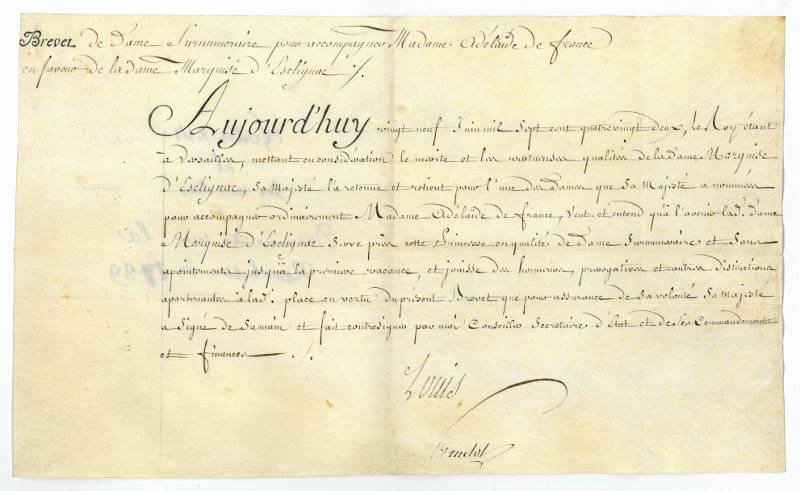 Brevet de Dame Surnumeraire pour accompagner Madame Adélaïde de france
en faveur de la dame Marquise d'Esclignac ./.
Aujourd'huy vingt neuf Juin mil Sept cent quatrevingt deux, le Roy étant
à Versailles, mettant en considération le mérite et les vertueuses qualités de la Dame Marquise
d'Esclignac, Sa Majesté l'a retenue et retient pour l'une des Dames que Sa Majesté a nommées
pour accompagner ordinairement Madame Adélaïde de france, Veut et entend qu'à l'avenir lad. Dame
Marquise d'Esclignac Serve près cette Princesse en qualité de Dame Surnumeraire et Sans
apointements jusqu'à la première vacance, et jouisse des honneurs, prérogatives et autres distinctions
apartenantes à lad. place en vertu du présent Brevet que pour assurance de sa volonté Sa Majesté
a Signé de Sa main et fait contresigner par moi Conseiller Secretaire d'Etat et de Ses Commandements
et finances ./.
Louis